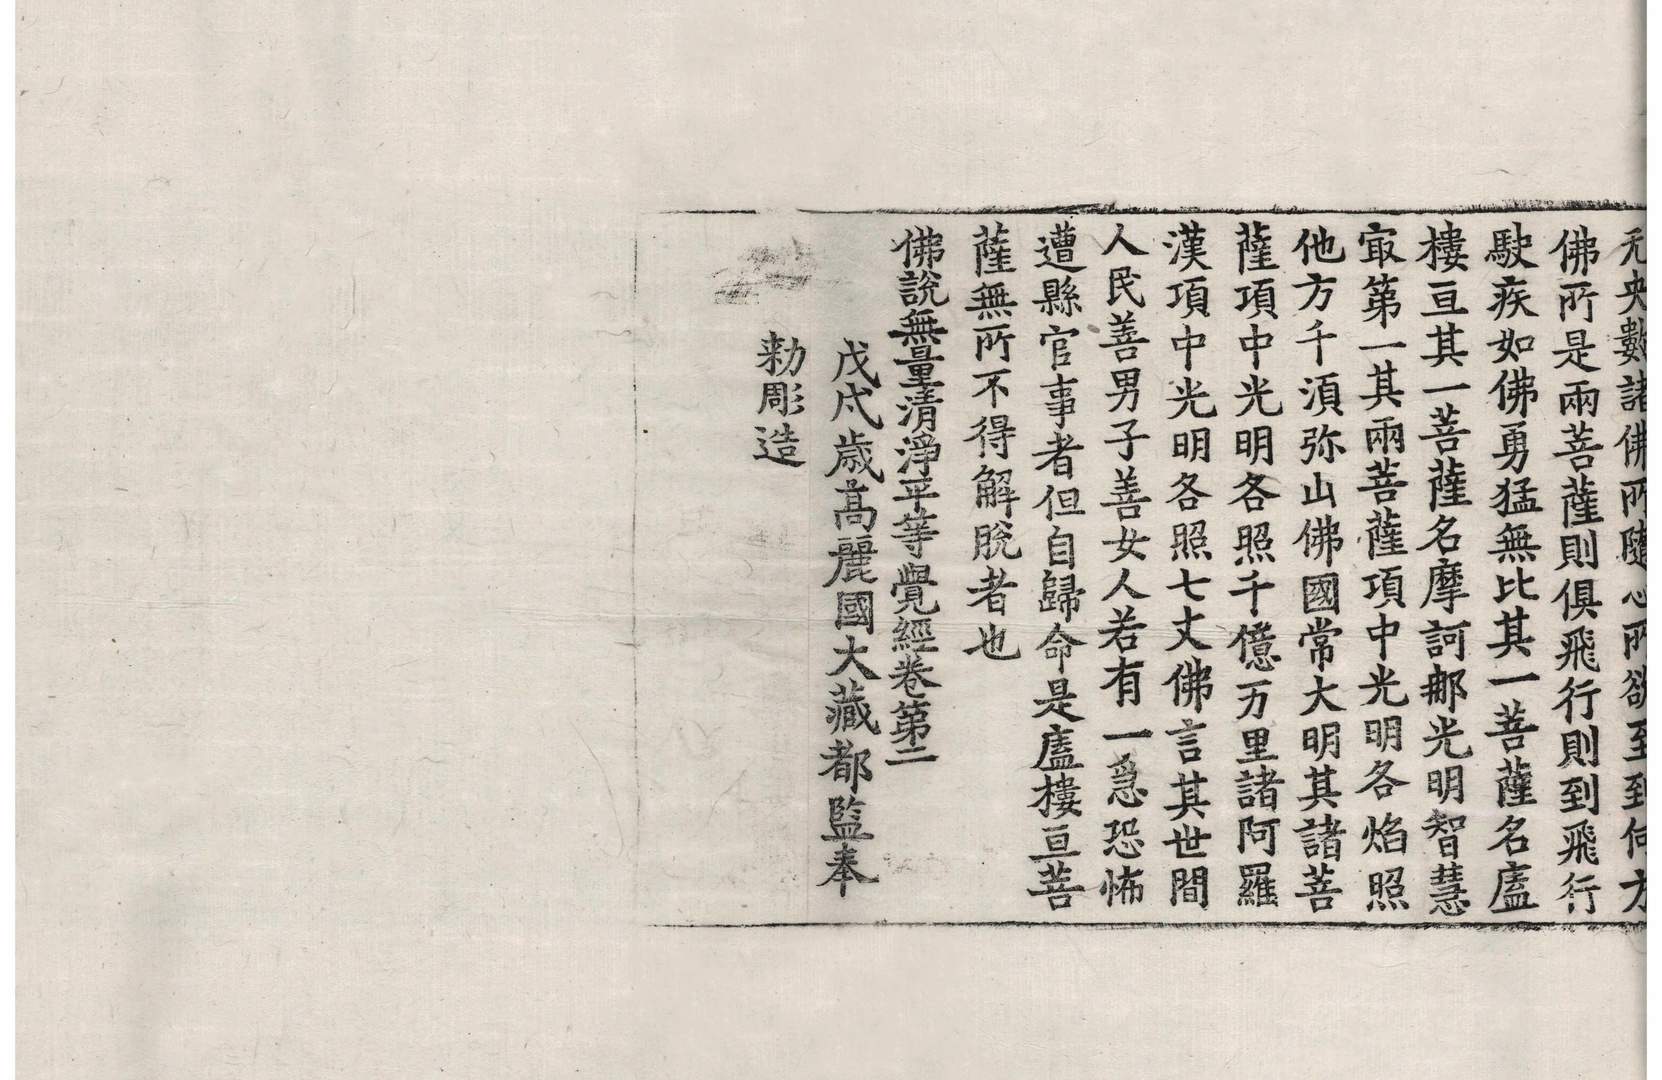 无央數諸佛所隨心所欲至到何方
佛所是兩菩薩則俱飛行則到飛行
駛疾如佛勇猛無比其一菩薩名廅
樓亘其一菩薩名摩訶那光明智慧
㝡第一其兩菩薩項中光明各焰照
他方千須弥山佛國常大明其諸菩
薩項中光明各照千億万里諸阿羅
漢項中光明各照七丈佛言其世間
人民善男子善女人若有一急恐怖
遭縣官事者但自歸命是廅樓亘菩
薩無所不得解脫者也
佛說無量清淨平等覺經卷第二
戊戌歲高麗國大藏都監奉
勑彫造